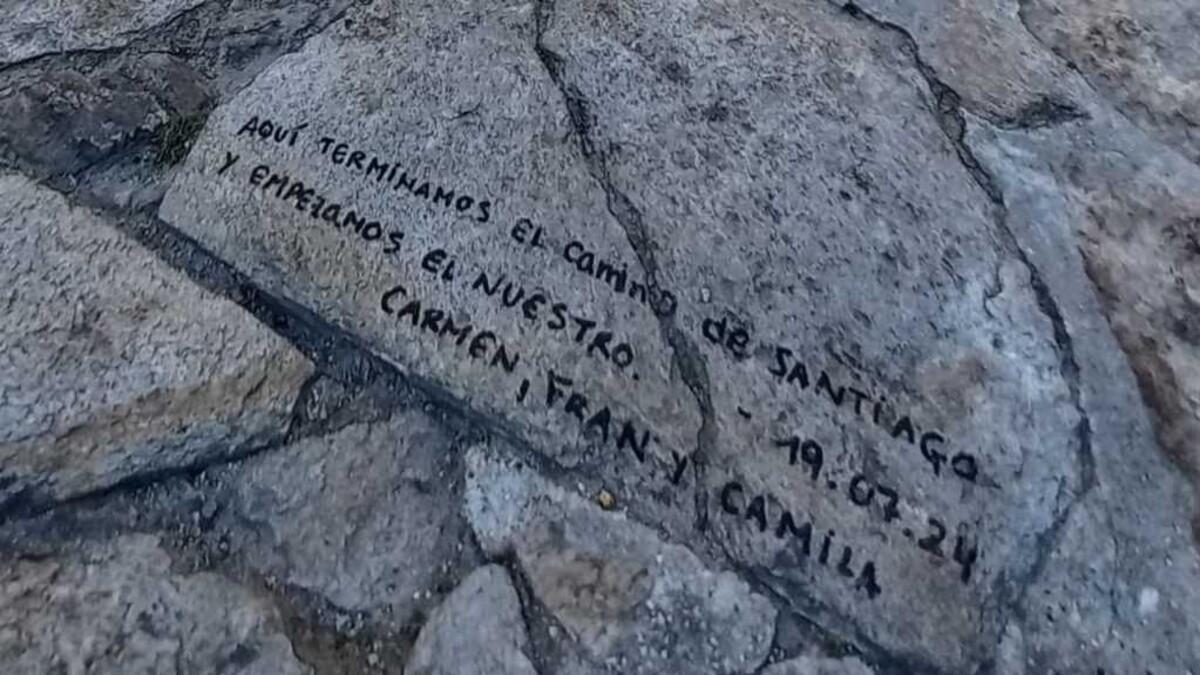 AQUÍ TERMINAMOS EL CAMINO de SANTIAGO
Y EMPEZAMOS EL NUESTRO. - 19.07.24
CARMEN, FRAN Y CAMILA